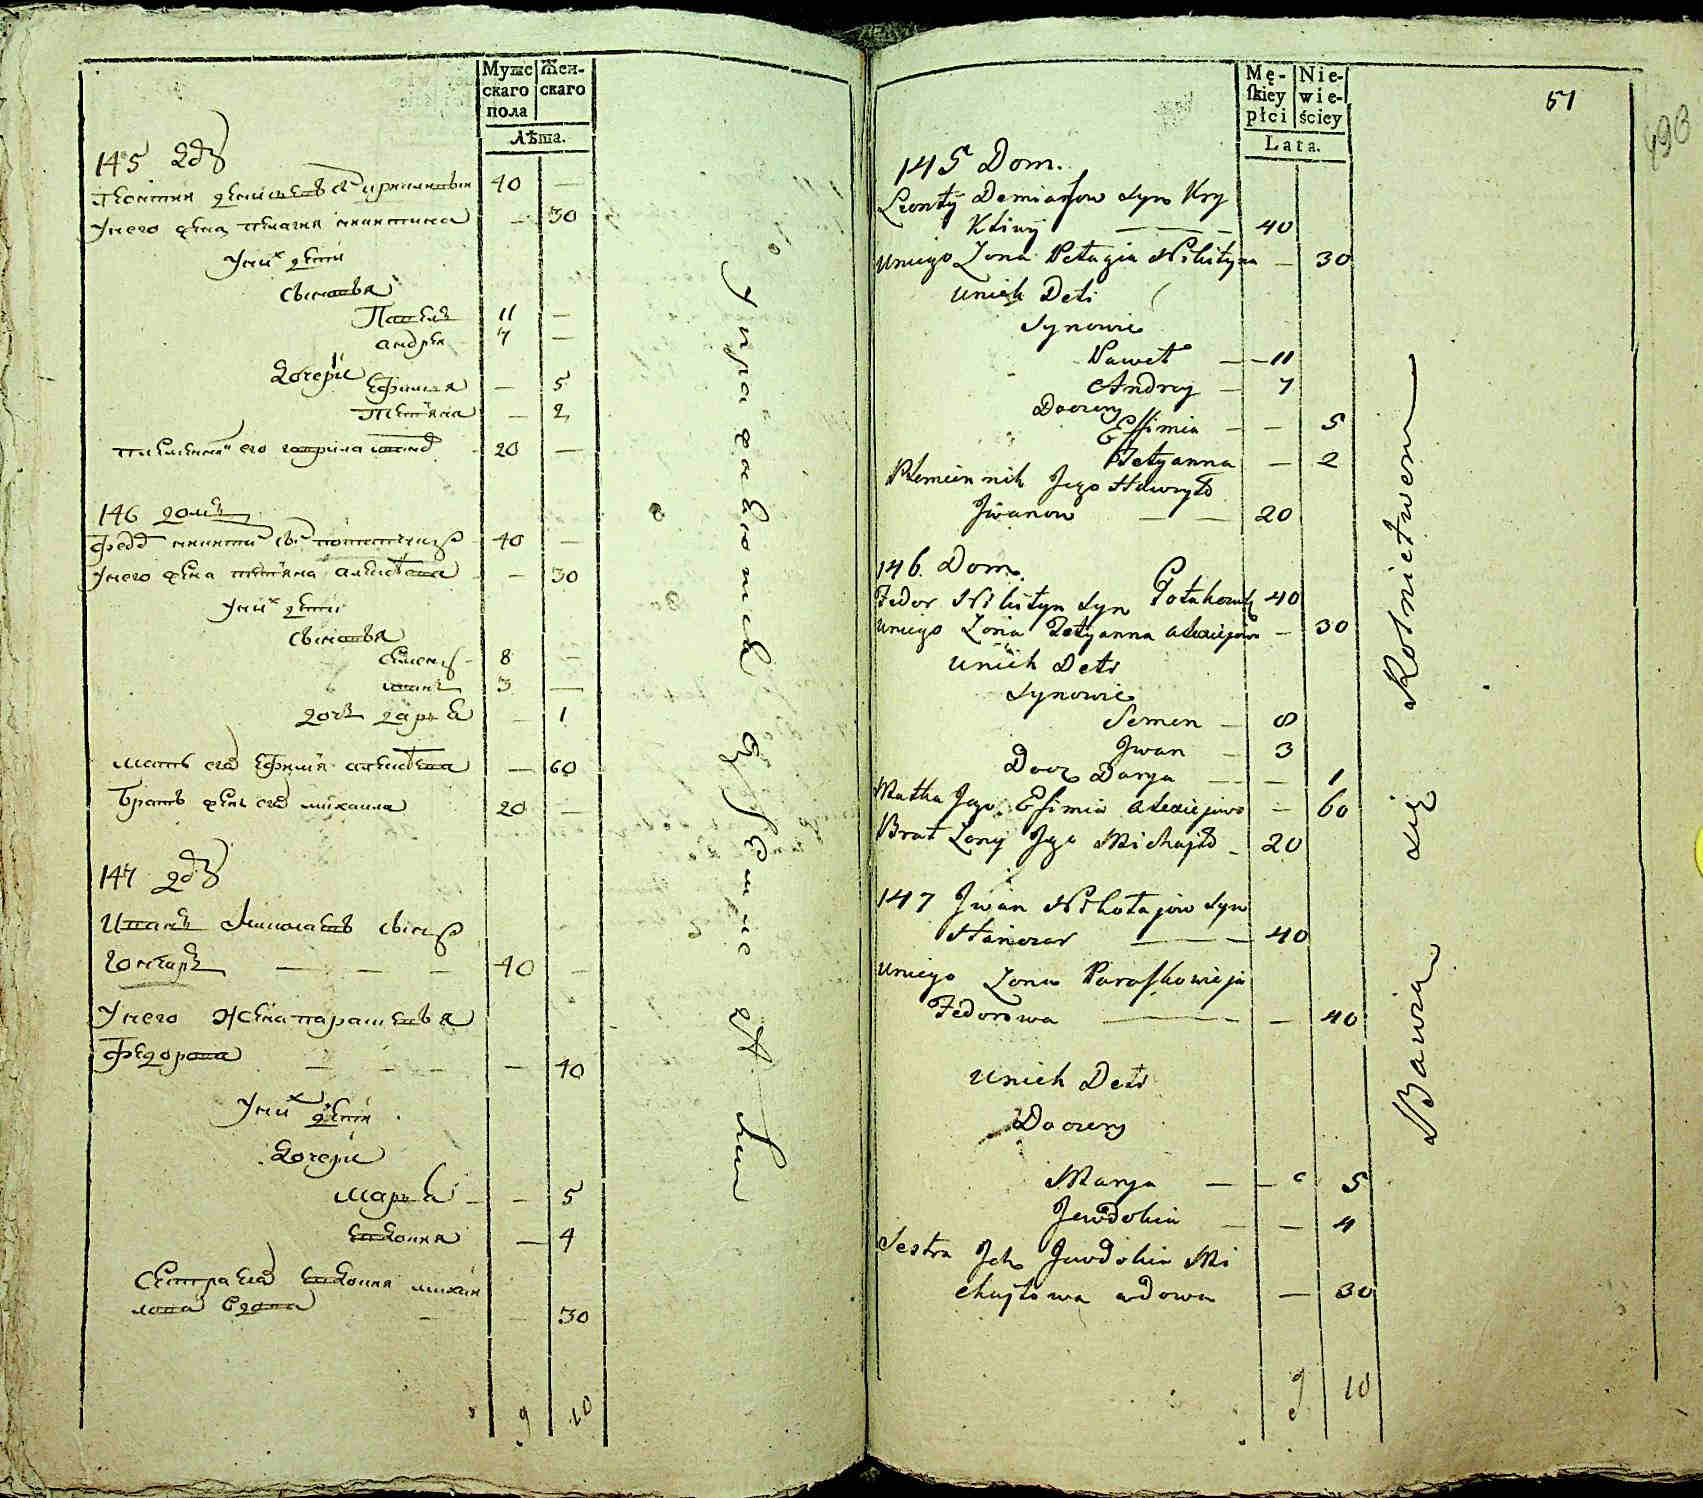 Муже
скаго
пола
Жен-
скаго
Лѣта.
145
40 —
Унего жена пелагия никитина — 30
Уних дети
сыновья
Павелъ 11 —
андрей 7 —
Дочери Ефимия — 5
Татьяна — 2
племянник его гаврила иванов 20 —
146 домъ
федор никитин сын 40 —
Унего жена татьяна алексеева — 30
Уних дети
сыновья
семенъ 8 —
иванъ 3 —
дочь дарья — 1
мать его ефимия алексеева — 60
братъ жены его михаила 20 —
147
Иванъ николаевъ сынъ
гончаръ — — — 40 —
Унего жена парасковья
федорова — — — — 40
Уних дети
дочери
марья — — 5
евдокия — 4
сестра его евдокия михаи
лова вдова — — 30
9 10
упражняются в земледелии
Mę-
ſkiey
płci
Nie-
wie-
ściey
Lata.
51
490
145 Dom.
Leonty Demianow syn Kry
Kliwy — — — 40
Uniego Zona Pelagia Nikityna — 30
Unich Deti
Synowie
Paweł — — 11
Andrey — 7
Doczery
Effimia — — 5
Tetyanna — 2
Plemiennik Jego Hawryło
Jwanow — — 20
146. Dom.
Fedor Nikityn syn Potakowicz 40
Uniego Zona Tetyanna Alexiejowa — 30
Unich Deti
Synowie
Semen — 8
Jwan — 3
Docz Darya — — 1
Matka Jego Efimia Alexiejowa — 60
Brat Zony Jego Michajło — 20
147 Jwan Nikołajow syn
Hanczar — — 40
Uniego Zona Paraskowieja
Fedorowa — — 40
Unich Deti
Doczery
Marya — — 5
Jewdokia — — 4
Sestra Jch Jewdokia Mi
chajłowa wdowa — 30
9 10
Bawią się Rolnictwem